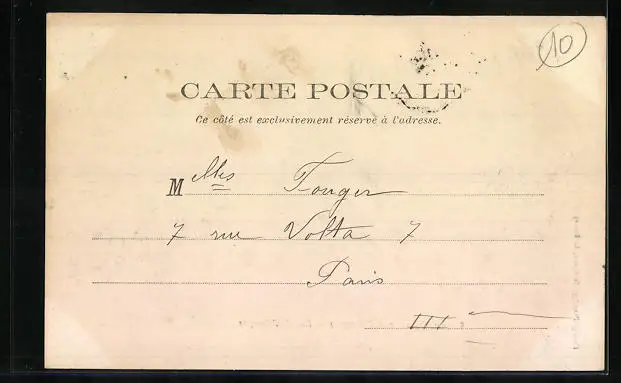 10
CARTE POSTALE
Ce côté est exclusivement réservé à l'adresse.
Melles Fouger
7 rue Volta 7
Paris
III e